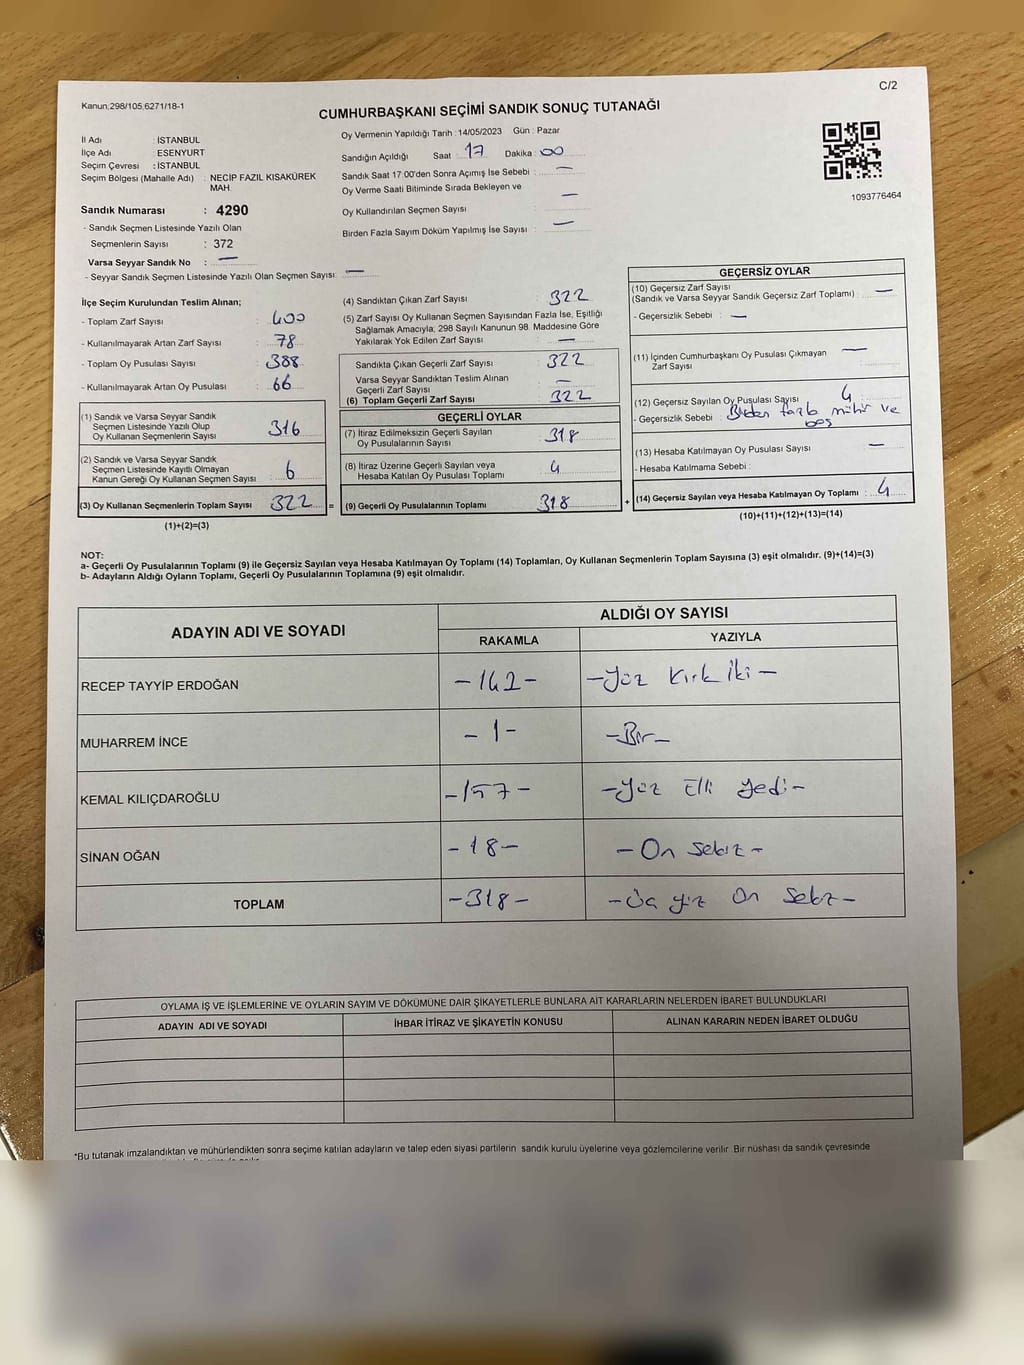 C/2
Kanun:298/105,6271/18-1
CUMHURBAŞKANI SEÇİMİ SANDIK SONUÇ TUTANAĞI
İl Adı : İSTANBUL
İlçe Adı : ESENYURT
Seçim Çevresi : İSTANBUL
Seçim Bölgesi (Mahalle Adı) : NECİP FAZIL KISAKÜREK MAH.
Sandık Numarası : 4290
- Sandık Seçmen Listesinde Yazılı Olan
Seçmenlerin Sayısı : 372
Varsa Seyyar Sandık No : —
- Seyyar Sandık Seçmen Listesinde Yazılı Olan Seçmen Sayısı: —
Oy Vermenin Yapıldığı Tarih : 14/05/2023 Gün : Pazar
Sandığın Açıldığı Saat : 17 Dakika : 00
Sandık Saat 17:00'den Sonra Açımış İse Sebebi : —
Oy Verme Saati Bitiminde Sırada Bekleyen ve —
Oy Kullandırılan Seçmen Sayısı :
Birden Fazla Sayım Döküm Yapılmış İse Sayısı : —
1093776464
İlçe Seçim Kurulundan Teslim Alınan;
- Toplam Zarf Sayısı : 400
- Kullanılmayarak Artan Zarf Sayısı : 78
- Toplam Oy Pusulası Sayısı : 388
- Kullanılmayarak Artan Oy Pusulası : 66
(1) Sandık ve Varsa Seyyar Sandık
Seçmen Listesinde Yazılı Olup
Oy Kullanan Seçmenlerin Sayısı : 316
(2) Sandık ve Varsa Seyyar Sandık
Seçmen Listesinde Kayıtlı Olmayan
Kanun Gereği Oy Kullanan Seçmen Sayısı : 6
(3) Oy Kullanan Seçmenlerin Toplam Sayısı : 322 =
(1)+(2)=(3)
(4) Sandıktan Çıkan Zarf Sayısı : 322
(5) Zarf Sayısı Oy Kullanan Seçmen Sayısından Fazla İse, Eşitliği
Sağlamak Amacıyla; 298 Sayılı Kanunun 98. Maddesine Göre
Yakılarak Yok Edilen Zarf Sayısı : —
Sandıkta Çıkan Geçerli Zarf Sayısı : 322
Varsa Seyyar Sandıktan Teslim Alınan
Geçerli Zarf Sayısı : —
(6) Toplam Geçerli Zarf Sayısı : 322
GEÇERLİ OYLAR
(7) İtiraz Edilmeksizin Geçerli Sayılan
Oy Pusulalarının Sayısı : 318
(8) İtiraz Üzerine Geçerli Sayılan veya
Hesaba Katılan Oy Pusulası Toplamı : 4
(9) Geçerli Oy Pusulalarının Toplamı : 318 +
GEÇERSİZ OYLAR
(10) Geçersiz Zarf Sayısı
(Sandık ve Varsa Seyyar Sandık Geçersiz Zarf Toplamı) : —
- Geçersizlik Sebebi : —
(11) İçinden Cumhurbaşkanı Oy Pusulası Çıkmayan
Zarf Sayısı : —
(12) Geçersiz Sayılan Oy Pusulası Sayısı : 4
- Geçersizlik Sebebi : Birden fazla mühür ve
boş
(13) Hesaba Katılmayan Oy Pusulası Sayısı : —
- Hesaba Katılmama Sebebi :
(14) Geçersiz Sayılan veya Hesaba Katılmayan Oy Toplamı : 4
(10)+(11)+(12)+(13)=(14)
NOT:
a- Geçerli Oy Pusulalarının Toplamı (9) ile Geçersiz Sayılan veya Hesaba Katılmayan Oy Toplamı (14) Toplamları, Oy Kullanan Seçmenlerin Toplam Sayısına (3) eşit olmalıdır. (9)+(14)=(3)
b- Adayların Aldığı Oyların Toplamı, Geçerli Oy Pusulalarının Toplamına (9) eşit olmalıdır.
ADAYIN ADI VE SOYADI ALDIĞI OY SAYISI
RAKAMLA YAZIYLA
RECEP TAYYİP ERDOĞAN -142- -Yüz Kırk İki-
MUHARREM İNCE -1- -Bir-
KEMAL KILIÇDAROĞLU -157- -Yüz Elli Yedi-
SİNAN OĞAN -18- -On Sekiz-
TOPLAM -318- -Üç yüz On Sekiz-
OYLAMA İŞ VE İŞLEMLERİNE VE OYLARIN SAYIM VE DÖKÜMÜNE DAİR ŞİKAYETLERLE BUNLARA AİT KARARLARIN NELERDEN İBARET BULUNDUKLARI
ADAYIN ADI VE SOYADI İHBAR İTİRAZ VE ŞİKAYETİN KONUSU ALINAN KARARIN NEDEN İBARET OLDUĞU
*Bu tutanak imzalandıktan ve mühürlendikten sonra seçime katılan adayların ve talep eden siyasi partilerin sandık kurulu üyelerine veya gözlemcilerine verilir. Bir nüshası da sandık çevresinde